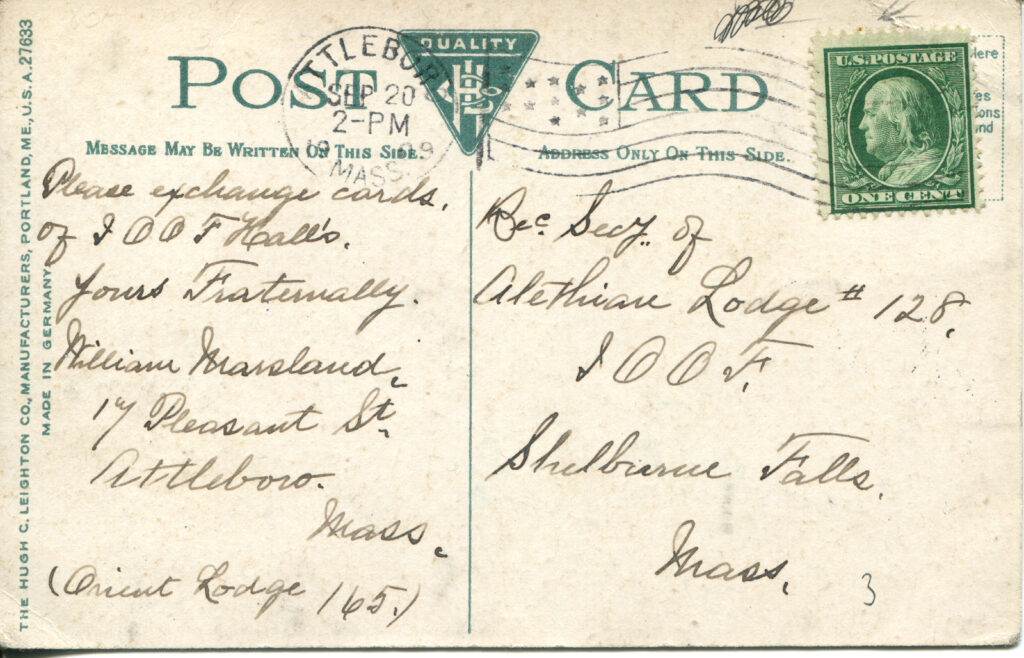 POST CARD
QUALITY
HCL Co
ATTLEBORO
SEP 20
2-PM
1909
MASS.
U.S. POSTAGE
ONE CENT
MESSAGE MAY BE WRITTEN ON THIS SIDE.
ADDRESS ONLY ON THIS SIDE.
Please exchange cards.
of I O O F Hall's.
Yours Fraternally.
William Marsland.
17 Pleasant St.
Attleboro.
Mass.
(Orient Lodge 165.)
Rec. Secy. of
Alethian Lodge # 128.
I O O F.
Shelburne Falls.
Mass.
3
THE HUGH C. LEIGHTON CO., MANUFACTURERS, PORTLAND, ME., U.S.A. 27633
MADE IN GERMANY